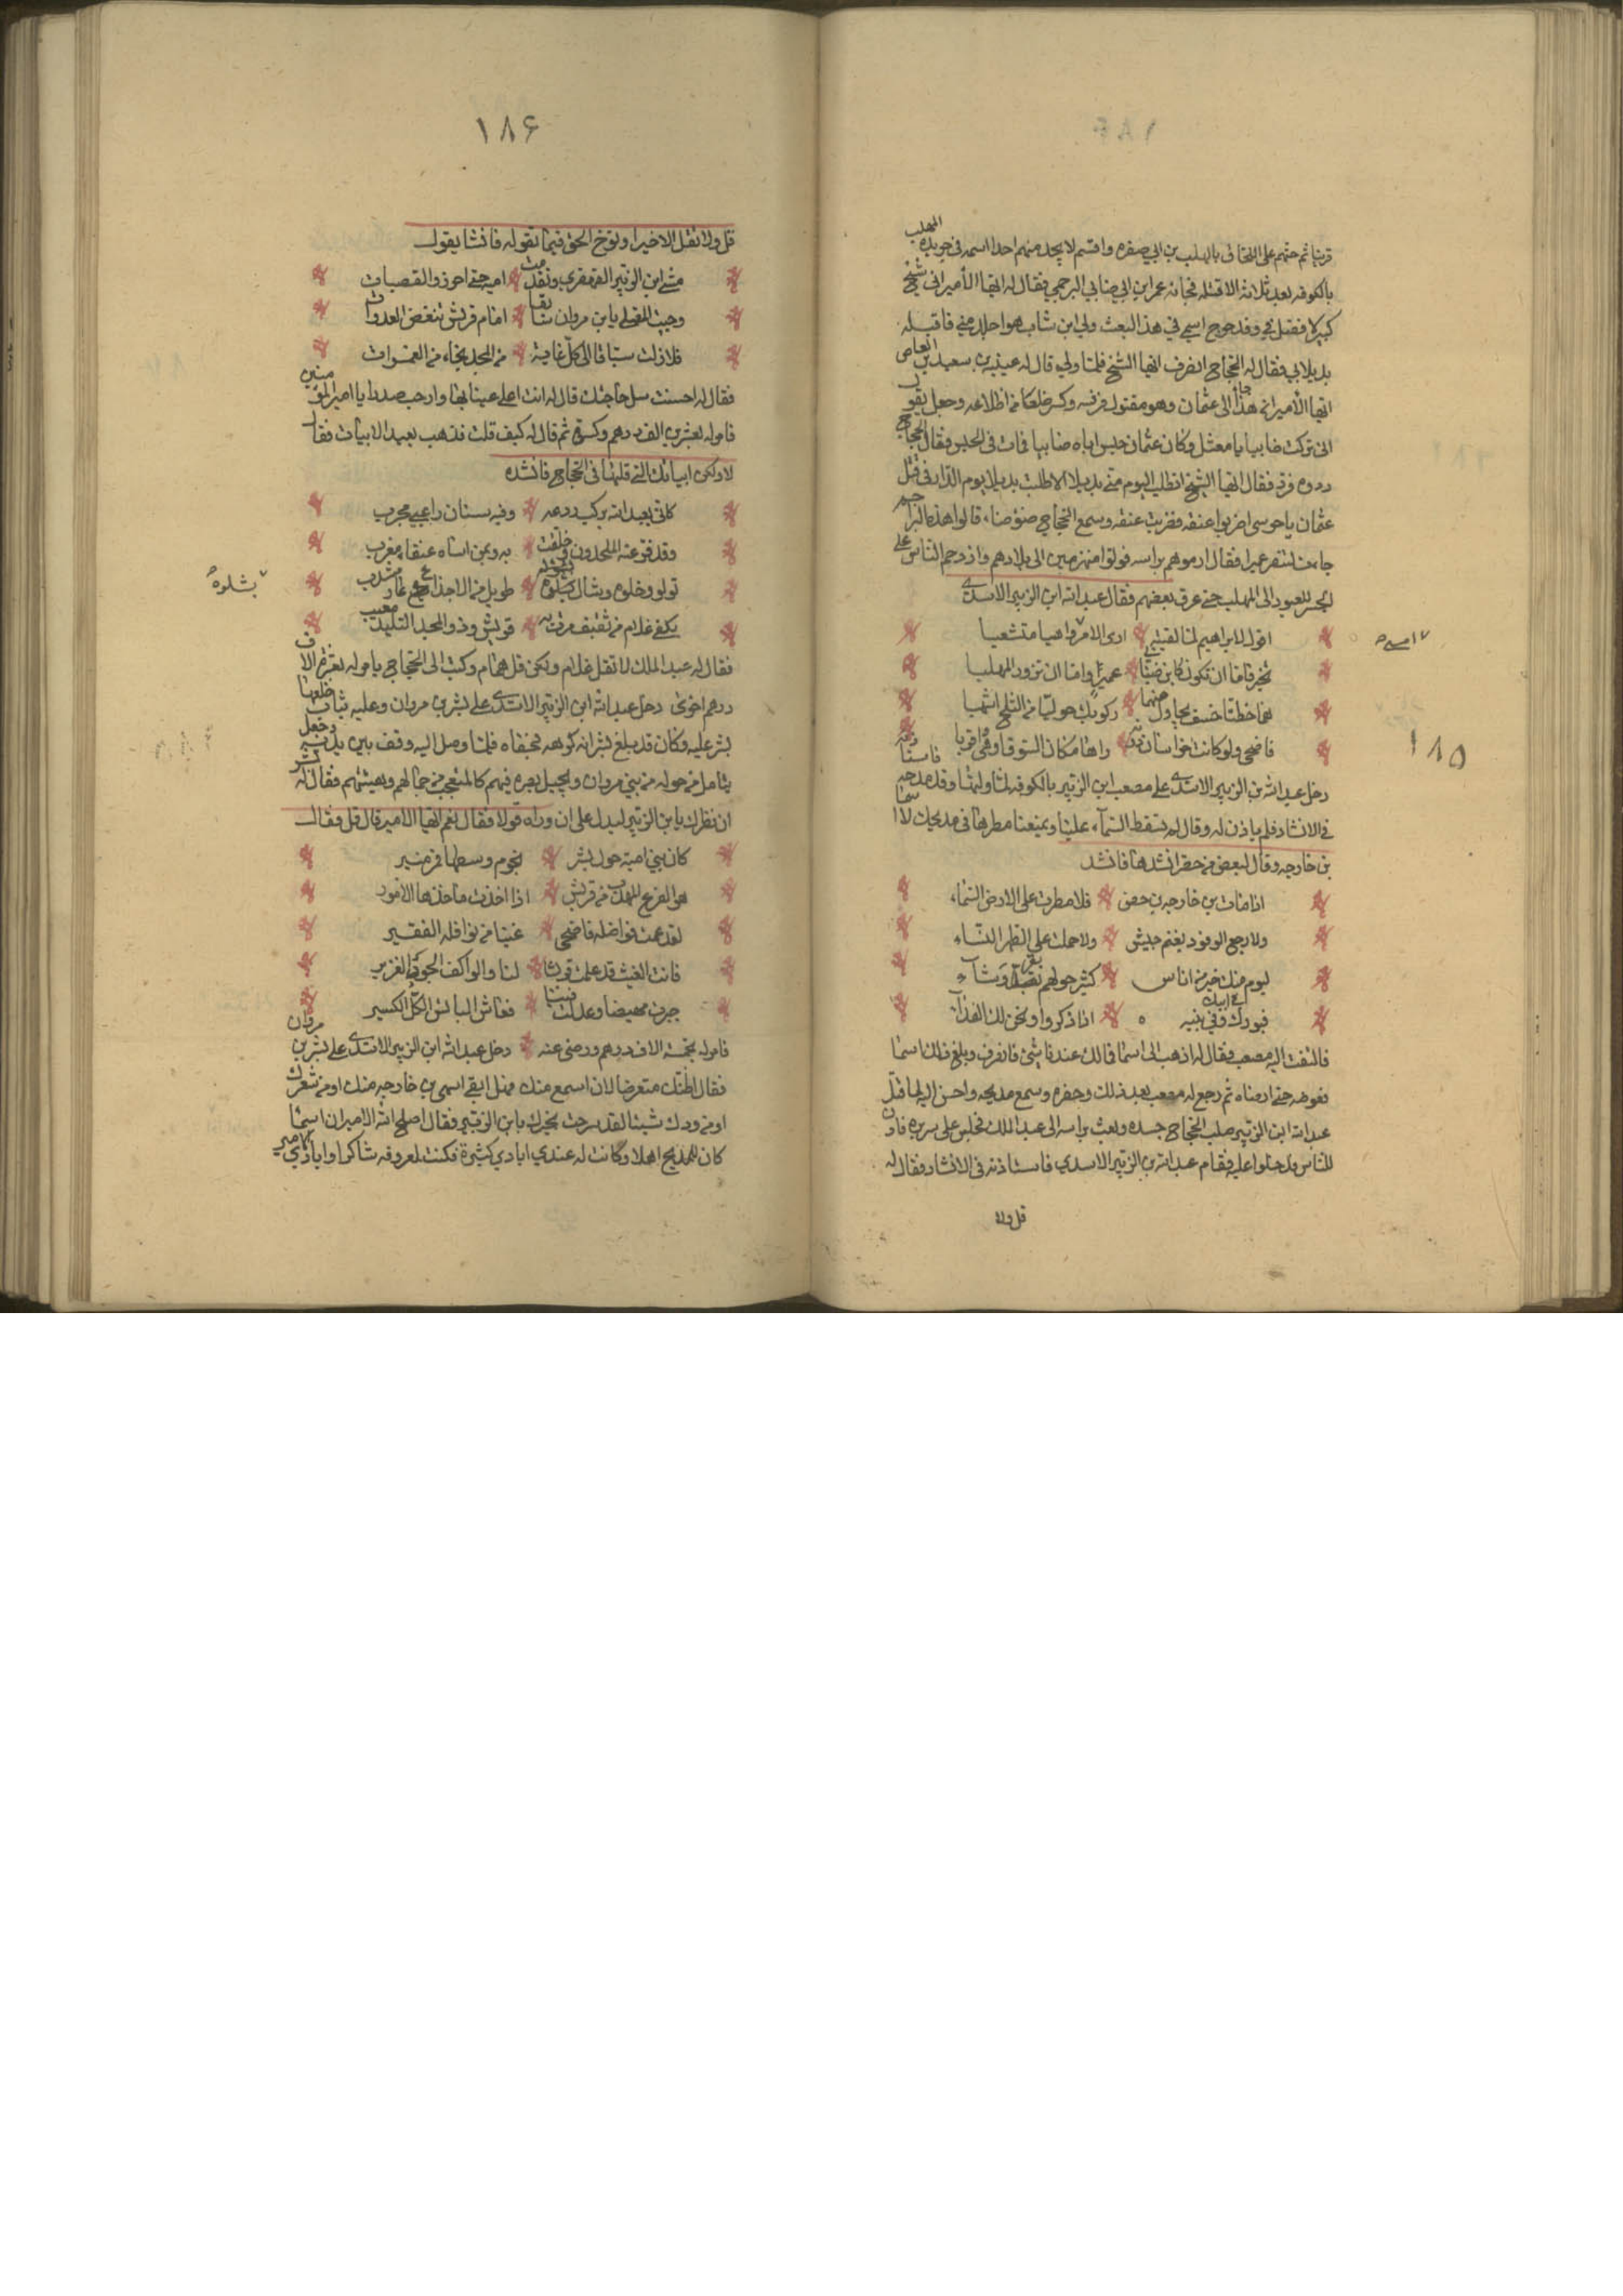 المهلب
قربا ثم حثهم على اللحاق بالمهلب بن ابي صفره واقسم لا يجد منهم احدا اسمه في جريده
بالكوفه بعد ثلاثه الا قتله فجائه عمر ابن ابي ضابي البرجمي فقال له ايها الأمير اني شيخ
كبير لا فضل في وقد خرج اسمي في هذا البعث ولي ابن شاب هو اجلد مني فاقبله
بديلا بي فقال له الحجاج انصرف ايها الشيخ فلما ولي قال له عنبسه بن سعيد بن العاص
ايها الأمير ان هذا جا الى عثمان وهو مقتول فرفسه وكسر ضلعا من اظلاعه وجعل يقول
اني تركت ضابيا يا معثل وكان عثمان حبس اباه ضابيا فمات في الحبس فقال الحجاج
ردوه فرد فقال ايها الشيخ اتطلب اليوم مني بديلا الا طلبت بديلا يوم الدار في قتل
عثمان يا حرسى اضربوا عنقه فضربت عنقه وسمع الحجاج ضوضاء قالوا هذه البراجم
جاءت لتنصر عميرا فقال ارموهم براسه فولوا منهزمين الى بلادهم وازدحم الناس على
الجسر للعبور الى المهلب حتى غرق بعضهم فقال عبد الله ابن الزبير الاسدي
اقول لابراهيم لما لقيته ارى الامر واهيا متشعبا
تخير فاما ان تكون كابن ضبا عميرا واما ان تزور المهلبا
هما خطتا خسف نجاول منهما ركوبك حوليا من الثلج اشهبا
فاضحى ولو كانت خراسان دونه راها مكان السوق او هي اقربا
١٨٥
دخل عبد الله بن الزبير الاسدي على مصعب ابن الزبير بالكوفه لما وليها وقد مدحه فاستاذنه
في الانشاد فلم ياذن له وقال له تسقط السماء علينا ويمنعنا مطرها في مديحك لاسما
بن خارجه وقال لبعض من حضر انشدها فانشد
اذا مات بن خارجه بن حصن فلا مطرت على الارض السماء
ولا رجع الوفود بغنم جيش ولا حملت على الطهر النساء
ليوم منك خير من اناس كثير حولهم نعم وشاء
فبورك في بنيه وفي ابيك اذا ذكروا ونحن لك الفداء
فالتفت اليه مصعب فقال له اذهب الى اسما فمالك عندنا شئ فانصرف وبلغ ذلك اسما
فعوضه حتى ارضاه ثم رجع له مصعب بعد ذلك وحضره وسمع مديحه واحسن اليه لما قتل
عبد الله ابن الزبير صلب الحجاج جسده وبعث براسه الى عبد الملك فجلس على سريره فاذن
للناس فدخلوا عليه فقام عبد الله بن الزبير الاسدي فاستاذنه في الانشاد فقال له
قل ولا
١٨٦
قل ولا تقل الا خيرا وتوخ الحق فيما تقوله فانشا يقول
مشى ابن الزبير القهقرى وتقدمت اميه حتى احرزوا القصبات
وجيت المصلى يا بن مروان سابقا امام قريش تنغض العذرات
فلا زلت سباقا الى كل غاية من المجد نجاء من الغمرات
فقال له احسنت سل حاجتك قال له انت اعلى عينا بها وارحب صدرا يا امير المؤمنين
فامر له بعشرين الف درهم وكسوه ثم قال له كيف قلت فذهب يعيد الابيات فقال
لا ولكن ابياتك التي قلتها في الحجاج فانشده
كاني بعبد الله يركب ردعه وفيه سنان زاعبي محرب
وقد فر عنه الملحدون وحلقت به وبمن اساه عنقاء مغرب
تولو وخلوه وشال بشلوه طويل من الاجذاع عار مشذب
بشلوه
يكفي غلام من ثقيف مرفت به قريش وذو المجد التليد معيب
فقال له عبد الملك لا تقل غلام ولكن قل همام وكتب الى الحجاج يامر له بعشرة الاف
درهم اخرى دخل عبد الله ابن الزبير الاسدي على بشر بن مروان وعليه ثياب خلعها
بشر عليه وكان قد بلغ بشرا انه كرهه فجفاه فلما وصل اليه وقف بين يديه وجعل
يتامل من حوله من بني مروان ويجيل بصره فيهم كالمتعجب من جمالهم وهيئتهم فقال له بشر
ان نظرك يا بن الزبير ليدل على ان وراه قولا فقال نعم ايها الامير قال قل فقال
كان بني اميه حول بشر نجوم وسطها قمر منير
هو الفرع المهذب من قريش اذا اخذت ماخذها الامور
لقد عمت فواضله فاضحى غنيا من نوافله الفقير
فانت الغيث قد علمت قريشا لنا والواكف الجون الغزير
جبرت مهيضا وعدلت فينا فعاش البائس الكل الكسير
فامر له بخمسة الاف درهم ورضي عنه دخل عبد الله ابن الزبير الاسدي على بشر بن مروان
فقال اظنك متعرضا لان اسمع منك فهل ابقى اسمى بن خارجه منك او من شعرك
او من ودك شيئا لقد نزحت بحرك يا بن الزبير فقال اصلح الله الامير ان اسما
كان للمديح اهلا وكانت له عندي ايادي كثيرة فكنت لمعروفه شاكرا وايادي الامير